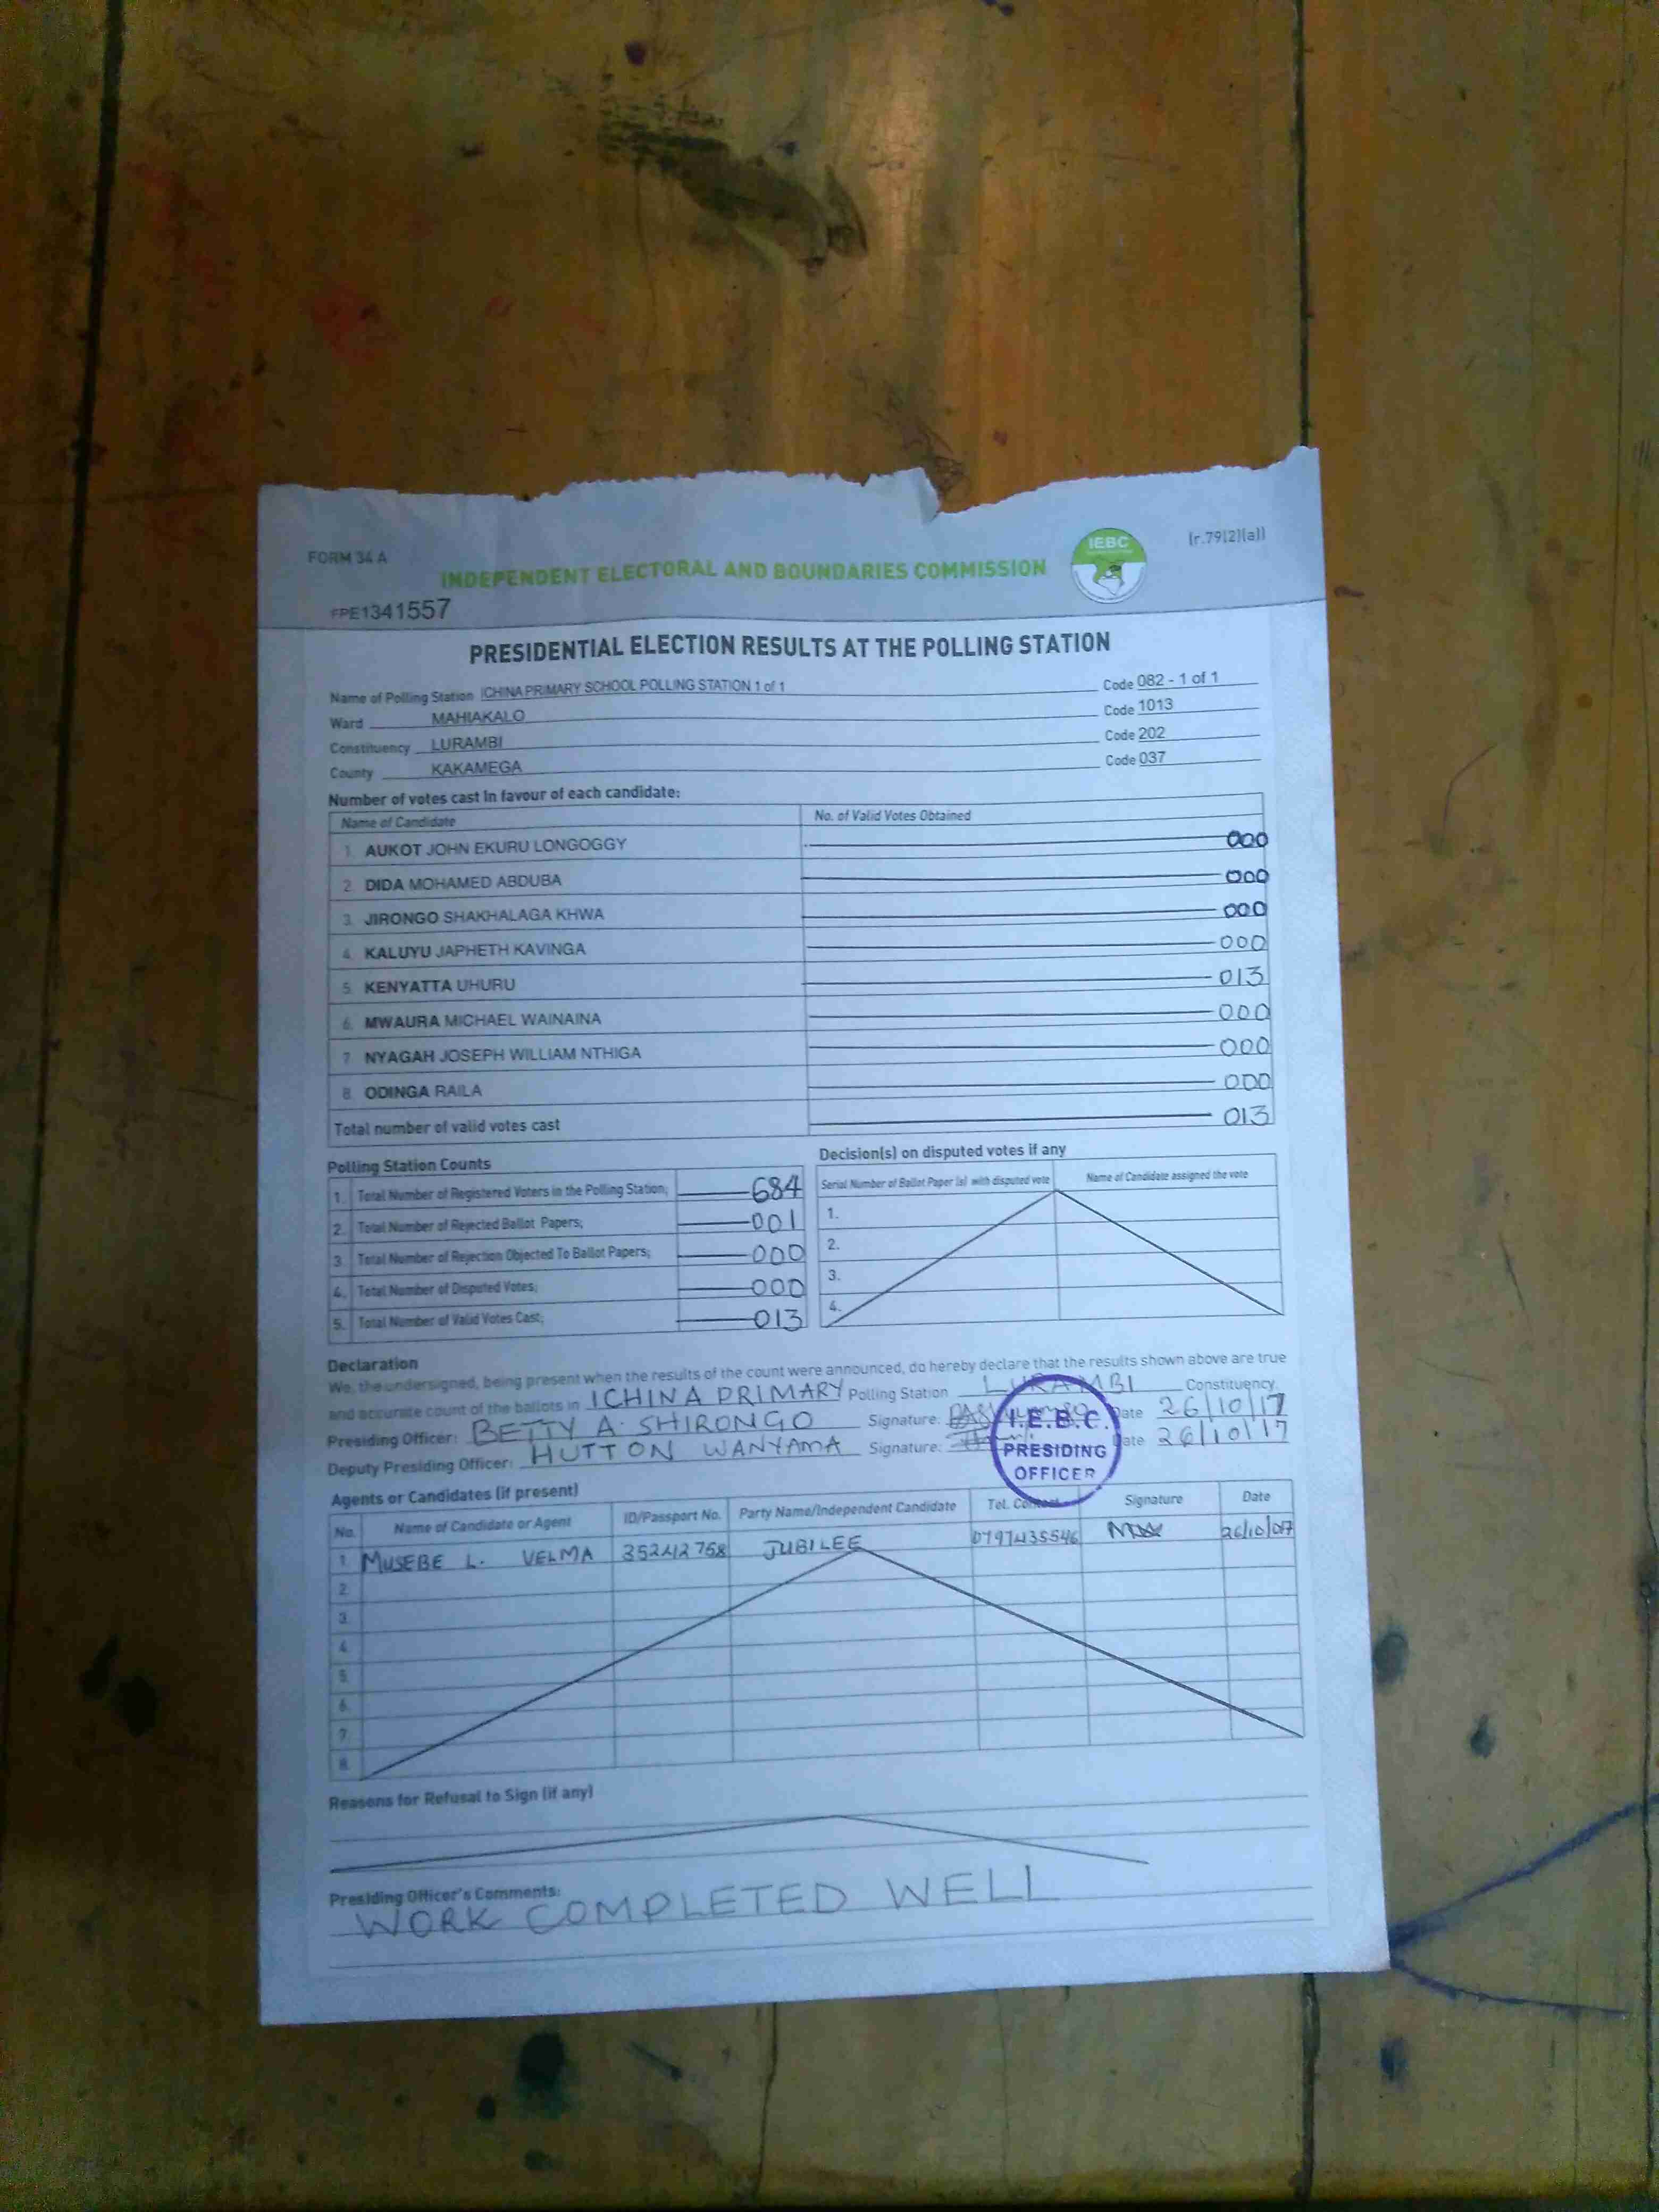 FORM 34 A
INDEPENDENT ELECTORAL AND BOUNDARIES COMMISSION
IEBC
(r.79(2)(a))
FPE1341557
PRESIDENTIAL ELECTION RESULTS AT THE POLLING STATION
Name of Polling Station ICHINA PRIMARY SCHOOL POLLING STATION 1 of 1 Code 082 - 1 of 1
Ward MAHIAKALO Code 1013
Constituency LURAMBI Code 202
County KAKAMEGA Code 037
Number of votes cast in favour of each candidate:
Name of Candidate No. of Valid Votes Obtained
1. AUKOT JOHN EKURU LONGOGGY 000
2. DIDA MOHAMED ABDUBA 000
3. JIRONGO SHAKHALAGA KHWA 000
4. KALUYU JAPHETH KAVINGA 000
5. KENYATTA UHURU 013
6. MWAURA MICHAEL WAINAINA 000
7. NYAGAH JOSEPH WILLIAM NTHIGA 000
8. ODINGA RAILA 000
Total number of valid votes cast 013
Polling Station Counts
1. Total Number of Registered Voters in the Polling Station; 684
2. Total Number of Rejected Ballot Papers; 001
3. Total Number of Rejection Objected To Ballot Papers; 000
4. Total Number of Disputed Votes; 000
5. Total Number of Valid Votes Cast; 013
Decision(s) on disputed votes if any
Serial Number of Ballot Paper (s) with disputed vote Name of Candidate assigned the vote
1.
2.
3.
4.
Declaration
We, the undersigned, being present when the results of the count were announced, do hereby declare that the results shown above are true
and accurate count of the ballots in ICHINA PRIMARY Polling Station LURAMBI Constituency.
Presiding Officer: BETTY A. SHIRONGO Signature: Date 26/10/17
Deputy Presiding Officer: HUTTON WANYAMA Signature: Date 26/10/17
I.E.B.C.
PRESIDING
OFFICER
Agents or Candidates (if present)
No. Name of Candidate or Agent ID/Passport No. Party Name/Independent Candidate Tel. Contact Signature Date
1 MUSEBE L. VELMA 35242768 JUBILEE 0797435546 26/10/017
2
3
4
5
6
7
8
Reasons for Refusal to Sign (if any)
Presiding Officer's Comments:
WORK COMPLETED WELL